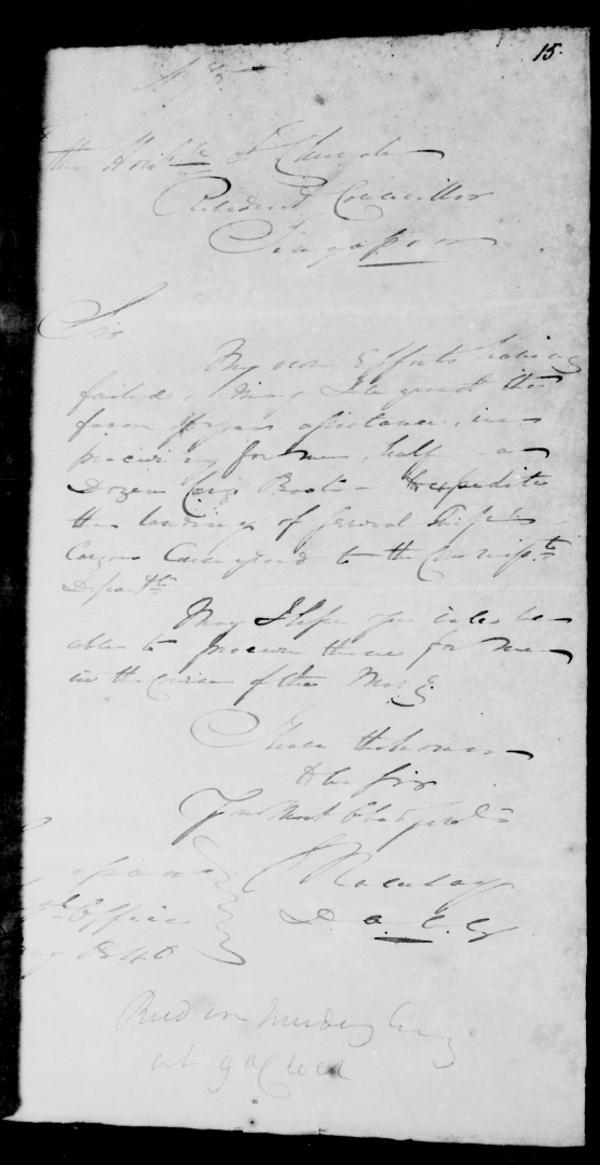 15.
No
the Honble T Church
Resident Councillor
Singapore
Sir
My own Efforts having
failed, May I request the
favor of your assistance, in
procuring for me, half a
Dozen Cargo Boats to expedite
the landing of several Ships
Cargoes Consigned to the Commisst
Departt
May I hope you will be
able to procure these for me
in the course of the Morng
I have the honor
to be Sir
Your Most Obedt Servt
Singapore
Office
1840
D. A. C. G
Recd on Sunday Eveng
at 9 o'Clock